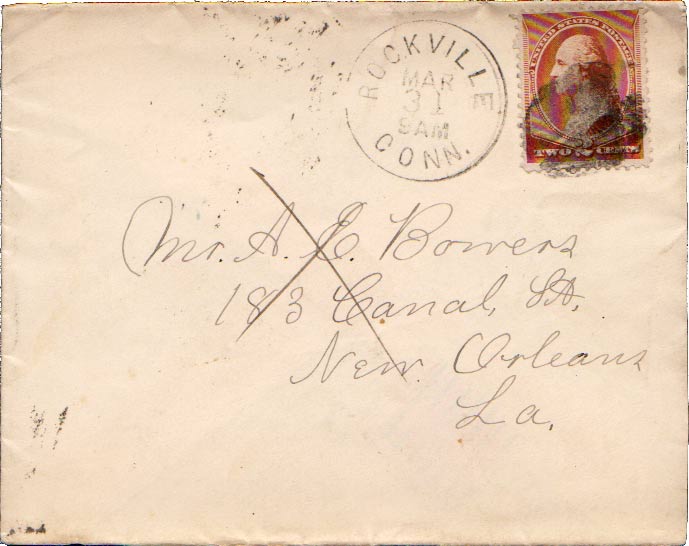 ROCKVILLE
MAR
31
9AM
CONN.
UNITED STATES POSTAGE
TWO 2 CENTS
Mr. A. E. Bowers
183 Canal, St,
New Orleans
La,